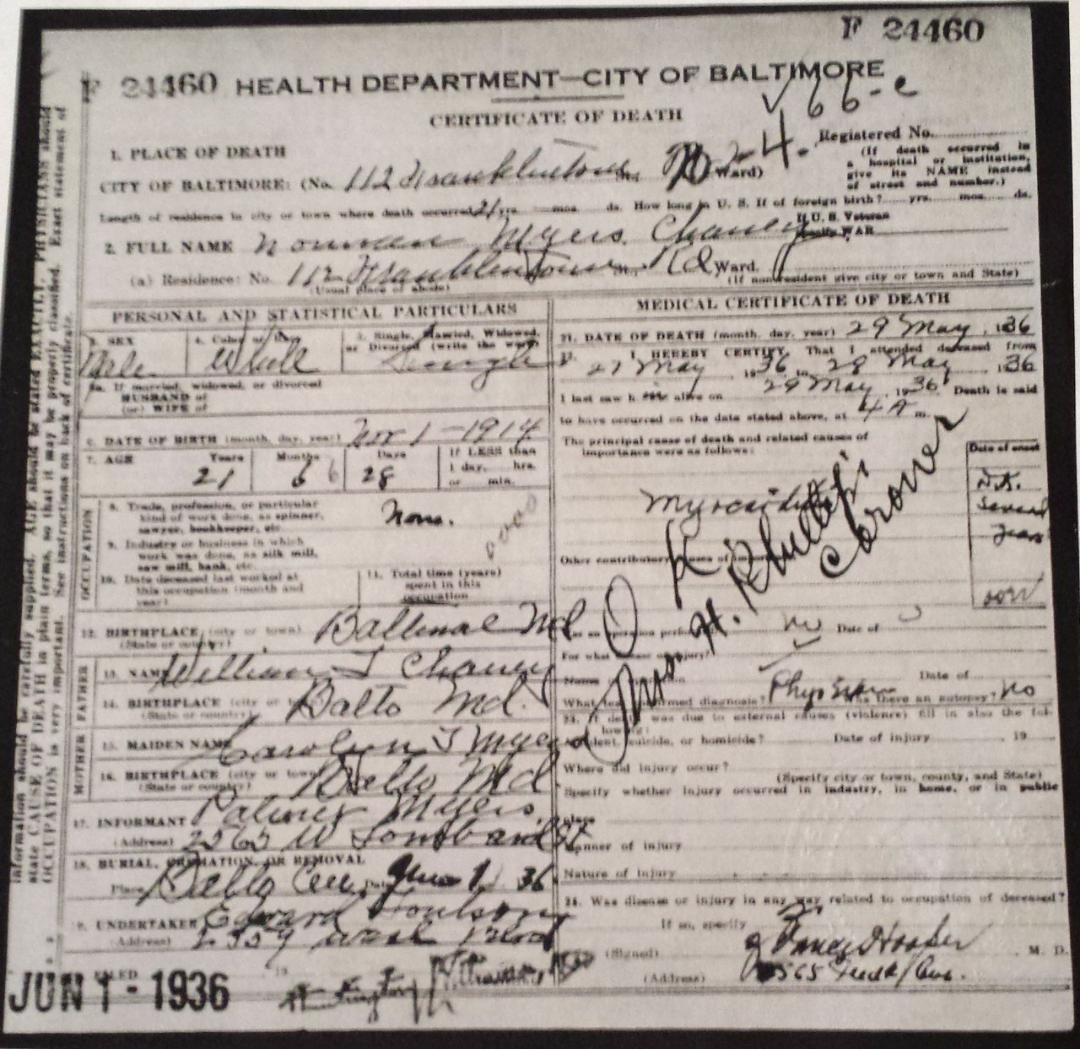 F 24460
F 24460 HEALTH DEPARTMENT—CITY OF BALTIMORE
CERTIFICATE OF DEATH
Registered No.
(If death occurred in
a hospital or institution,
give its NAME instead
of street and number.)
1. PLACE OF DEATH
CITY OF BALTIMORE: (No. 112 Franklintown Rd Ward)
Length of residence in city or town where death occurred 21 yrs. mos. ds. How long in U. S. if of foreign birth? yrs. mos. ds.
If U. S. Veteran
WAR
2. FULL NAME Norman Myers Chaney
(a) Residence: No. 112 Franklintown Rd Ward.
(Usual place of abode)
(If nonresident give city or town and State)
PERSONAL AND STATISTICAL PARTICULARS
3. SEX
Male
4. Color or
White
5. Single, Married, Widowed,
or Divorced (write the word)
Single
5a. If married, widowed, or divorced
HUSBAND of
(or) WIFE of
6. DATE OF BIRTH (month, day, year) Nov 1 - 1914
7. AGE Years Months Days If LESS than
1 day, hrs.
or min.
21 6 28
OCCUPATION
8. Trade, profession, or particular
kind of work done, as spinner,
sawyer, bookkeeper, etc.
None.
9. Industry or business in which
work was done, as silk mill,
saw mill, bank, etc.
10. Date deceased last worked at
this occupation (month and
year)
11. Total time (years)
spent in this
occupation
12. BIRTHPLACE (city or town) Baltimore Md
(State or country)
FATHER
13. NAME William J Chaney
14. BIRTHPLACE (city or
(State or country)
Balto Md.
MOTHER
15. MAIDEN NAME Carolyn J Myers
16. BIRTHPLACE (city or town
(State or country)
Balto Md
17. INFORMANT Palmer Myers
(Address) 2563 W Lombard St
18. BURIAL, CREMATION, OR REMOVAL
Place Balto Cem Date June 1 36
19. UNDERTAKER Edward
(Address) 2359 Wash Blvd
FILED
JUN 1 - 1936
MEDICAL CERTIFICATE OF DEATH
21. DATE OF DEATH (month, day, year) 29 May, 1936
22. I HEREBY CERTIFY, That I attended deceased from
27 May 1936 to 28 May 1936
I last saw h alive on 29 May, 1936 Death is said
to have occurred on the date stated above, at 4 A m.
The principal cause of death and related causes of
importance were as follows:
Date of onset
Myocarditis
Several
years
Other contributory causes of
O K
Thos H. Phillips
Coroner
no Date of
For what injury?
Name Date of
What test confirmed diagnosis? Was there an autopsy? No
23. If death was due to external causes (violence) fill in also the fol-
lowing:
Accident, suicide, or homicide? Date of injury 19
Where did injury occur?
(Specify city or town, county, and State)
Specify whether injury occurred in industry, in home, or in public
place
Manner of injury
Nature of injury
24. Was disease or injury in any way related to occupation of deceased?
If so, specify
(Signed) Hooper M. D.
(Address)
information should be carefully supplied. AGE should be stated EXACTLY. PHYSICIANS should
state CAUSE OF DEATH in plain terms, so that it may be properly classified. Exact statement of
OCCUPATION is very important. See instructions on back of certificate.